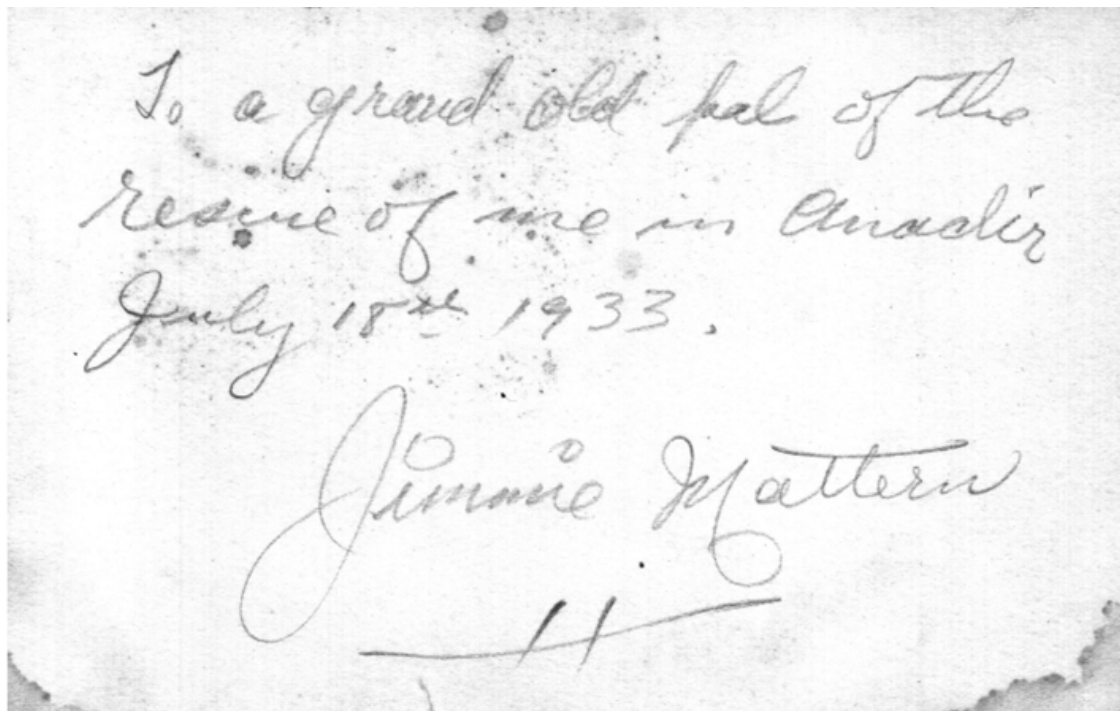 To a grand old pal of the
rescue of me in Anadir
July 18th 1933.
Jimmie Mattern